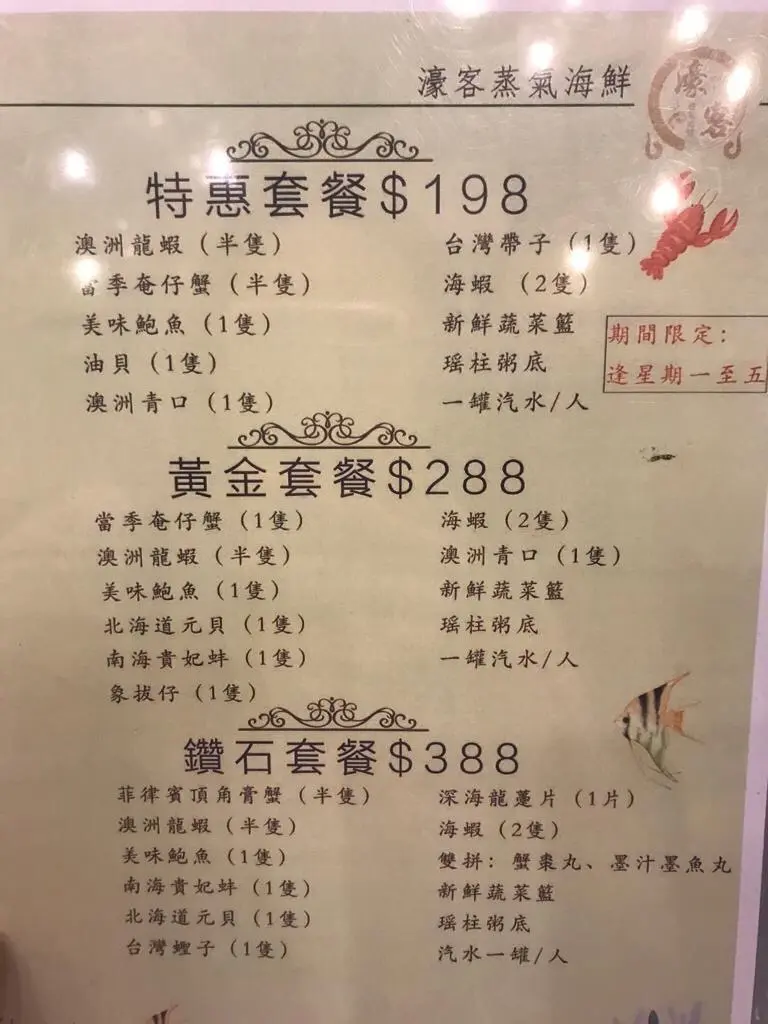 濠客蒸氣海鮮
濠客
特惠套餐$198
澳洲龍蝦（半隻）
當季奄仔蟹（半隻）
美味鮑魚（1隻）
油貝（1隻）
澳洲青口（1隻）
台灣帶子（1隻）
海蝦（2隻）
新鮮蔬菜籃
瑶柱粥底
一罐汽水/人
期間限定：
逢星期一至五
黃金套餐$288
當季奄仔蟹（1隻）
澳洲龍蝦（半隻）
美味鮑魚（1隻）
北海道元貝（1隻）
南海貴妃蚌（1隻）
象拔仔（1隻）
海蝦（2隻）
澳洲青口（1隻）
新鮮蔬菜籃
瑶柱粥底
一罐汽水/人
鑽石套餐$388
菲律賓頂角膏蟹（半隻）
澳洲龍蝦（半隻）
美味鮑魚（1隻）
南海貴妃蚌（1隻）
北海道元貝（1隻）
台灣蟶子（1隻）
深海龍躉片（1片）
海蝦（2隻）
雙拼：蟹棗丸、墨汁墨魚丸
新鮮蔬菜籃
瑶柱粥底
汽水一罐/人